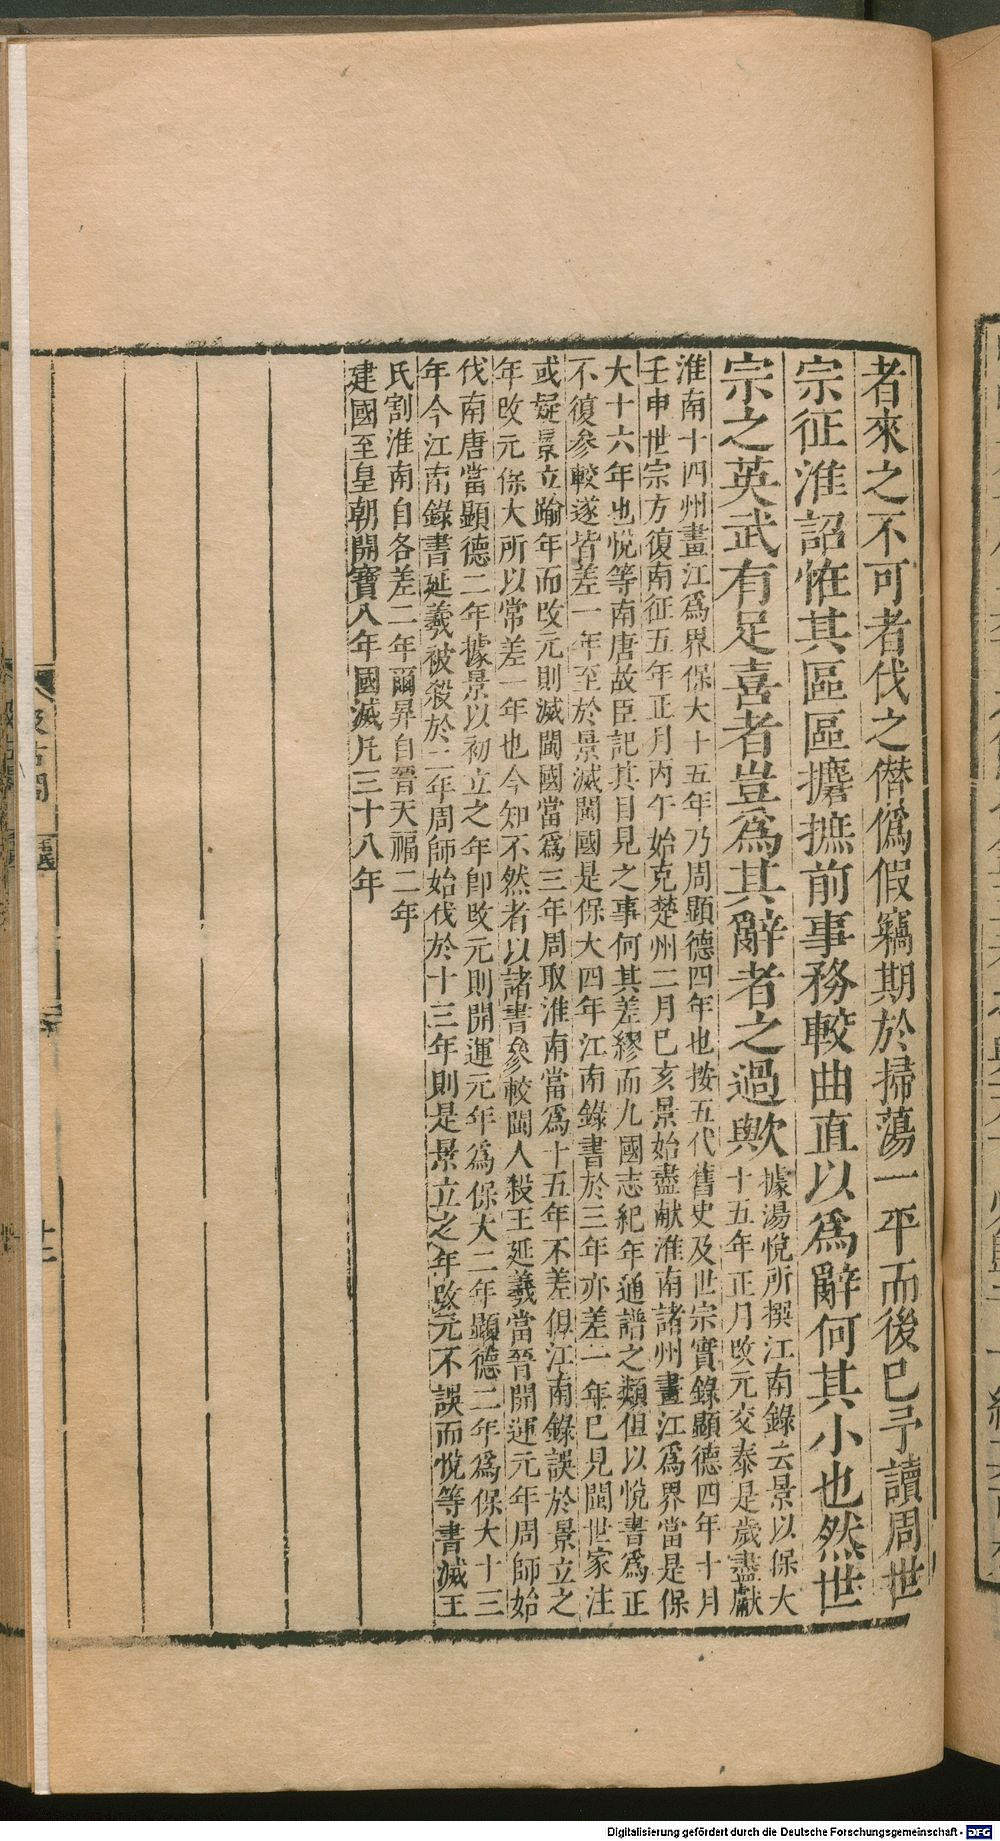 者來之不可者伐之僭僞假竊期於掃蕩一平而後已予讀周世
宗征淮詔怪其區區攟摭前事務較曲直以爲辭何其小也然世
宗之英武有足喜者豈爲其辭者之過歟
據湯悅所撰江南錄云景以保大
十五年正月改元交泰是歲盡獻
淮南十四州畫江爲界保大十五年乃周顯德四年也按五代舊史及世宗實錄顯德四年十月
壬申世宗方復南征五年正月丙午始克楚州二月己亥景始盡献淮南諸州畫江爲界當是保
大十六年也悅等南唐故臣記其目見之事何其差繆而九國志紀年通譜之類但以悅書爲正
不復參較遂皆差一年至於景滅閩國是保大四年江南錄書於三年亦差一年已見閩世家注
或疑景立踰年而改元則滅閩國當爲三年周取淮南當爲十五年不差但江南錄誤於景立之
年改元保大所以常差一年也今知不然者以諸書參較閩人殺王延羲當晉開運元年周師始
伐南唐當顯德二年據景以初立之年卽改元則開運元年爲保大二年顯德二年爲保大十三
年今江南錄書延羲被殺於二年周師始伐於十三年則是景立之年改元不誤而悅等書滅王
氏割淮南自各差二年爾昪自晉天福二年
建國至皇朝開寶八年國滅凡三十八年
汲古閣
Digitalisierung gefördert durch die Deutsche Forschungsgemeinschaft - DFG